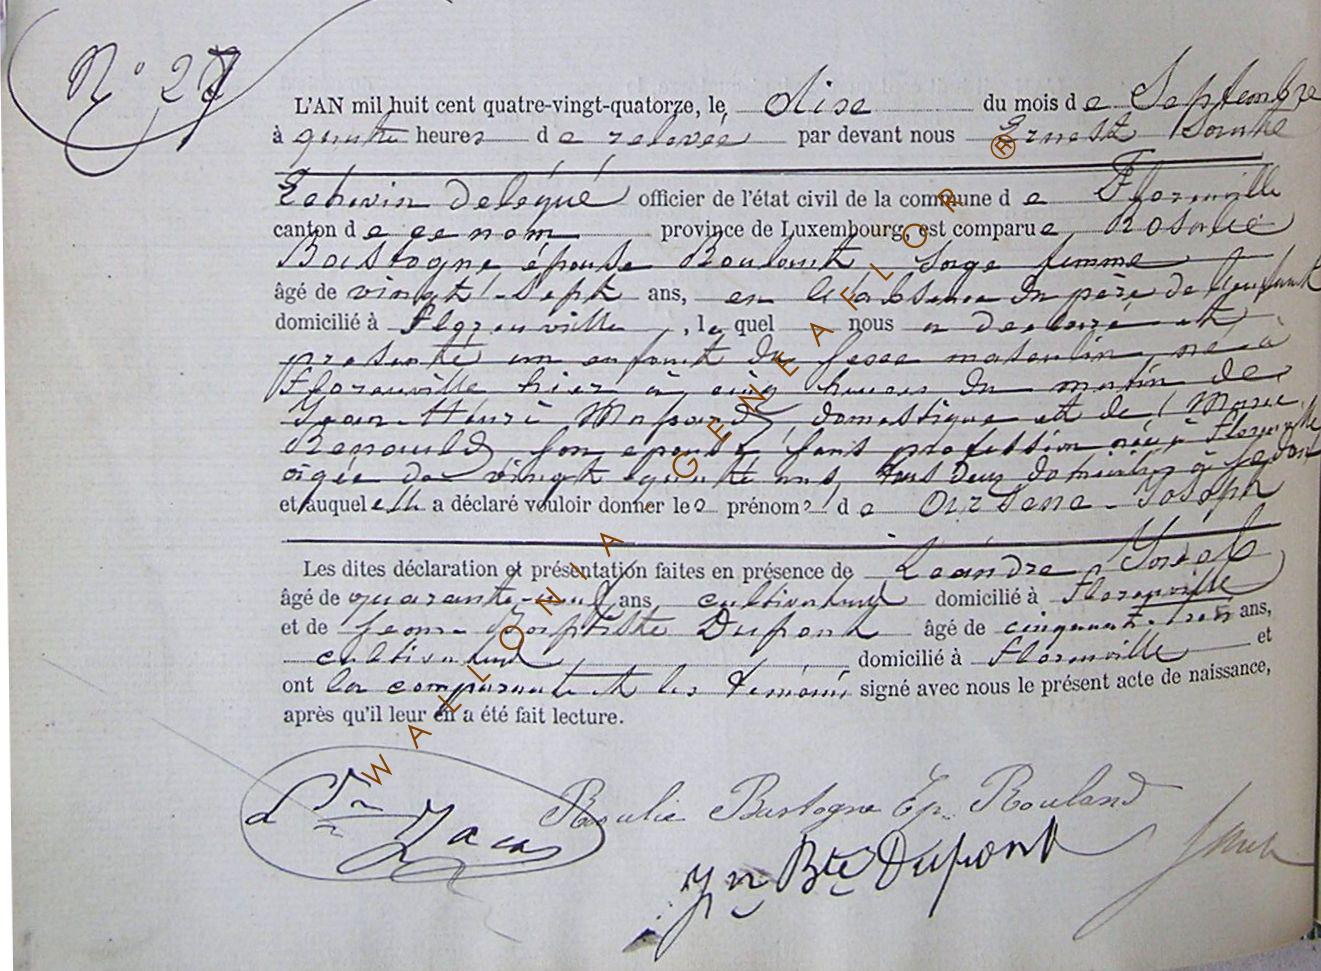 N° 27
L'AN mil huit cent quatre-vingt-quatorze, le dise du mois de Septembre
à quatre heures de relevée par devant nous Ernest
Echevin délégué officier de l'état civil de la commune de Florenville
canton de ce nom province de Luxembourg, est comparue Rosalie
Bastogne épouse Roulant Sage femme
âgé de vingt-Sept ans, en l'absence du père de l'enfant
domicilié à Florenville, laquel nous a déclaré et
présenté un enfant du sexe masculin né à
Florenville hier à cinq heures du matin de
Jean domestique et de Marie
Renauld son épouse sans profession née à Florenville
âgée de vingt quatre ans, tous deux domiciliés à Sedan
et auquel elle a déclaré vouloir donner les prénoms de Arsène Joseph
Les dites déclaration et présentation faites en présence de Léandre
âgé de quarante-neuf ans cultivateur domicilié à Florenville
et de Jean Baptiste Dupont âgé de cinquante-trois ans,
cultivateur domicilié à Florenville et
ont la comparante et les témoins signé avec nous le présent acte de naissance,
après qu'il leur en a été fait lecture.
Rosalie Bastogne Ep. Rouland
Jn Bte Dupont
WALLONIA GENEAFLOR ®